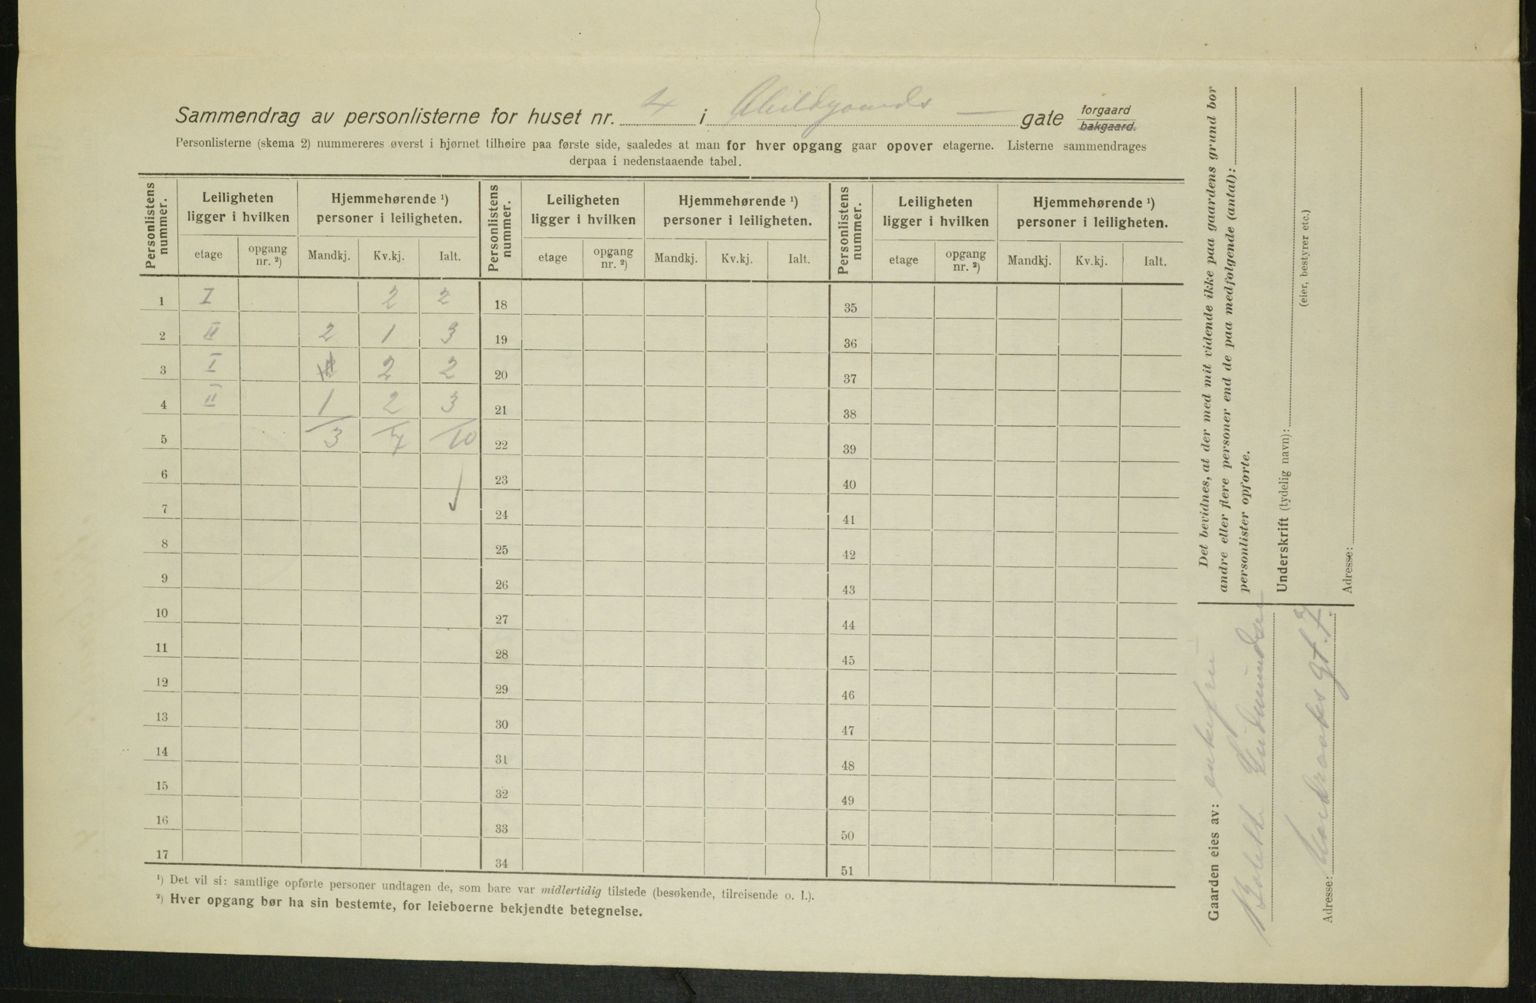 Sammendrag av personlisterne for huset nr. 4 i Abildgaards — gate forgaard bakgaard.
Personlisterne (skema 2) nummereres øverst i hjørnet tilhøire paa første side, saaledes at man for hver opgang gaar opover etagerne. Listerne sammendrages
derpaa i nedenstaaende tabel.
Personlistens nummer. Leiligheten ligger i hvilken Hjemmehørende ¹) personer i leiligheten. Personlistens nummer. Leiligheten ligger i hvilken Hjemmehørende ¹) personer i leiligheten. Personlistens nummer. Leiligheten ligger i hvilken Hjemmehørende ¹) personer i leiligheten.
etage opgang nr. ²) Mandkj. Kv.kj. Ialt. etage opgang nr. ²) Mandkj. Kv.kj. Ialt. etage opgang nr. ²) Mandkj. Kv.kj. Ialt.
1 I 2 2 18 35
2 II 2 1 3 19 36
3 I 2 2 20 37
4 II 1 2 3 21 38
5 3 7 10 22 39
6 23 40
7 24 41
8 25 42
9 26 43
10 27 44
11 28 45
12 29 46
13 30 47
14 31 48
15 32 49
16 33 50
17 34 51
¹) Det vil si: samtlige opførte personer undtagen de, som bare var midlertidig tilstede (besøkende, tilreisende o. l.).
²) Hver opgang bør ha sin bestemte, for leieboerne bekjendte betegnelse.
Det bevidnes, at der med mit vidende ikke paa gaardens grund bor
andre eller flere personer end de paa medfølgende (antal):
personlister opførte.
Underskrift (tydelig navn):
(eier, bestyrer etc.)
Adresse:
Gaarden eies av: enkefru
Gudmundsen
Adresse: Nordraakes gt. 7